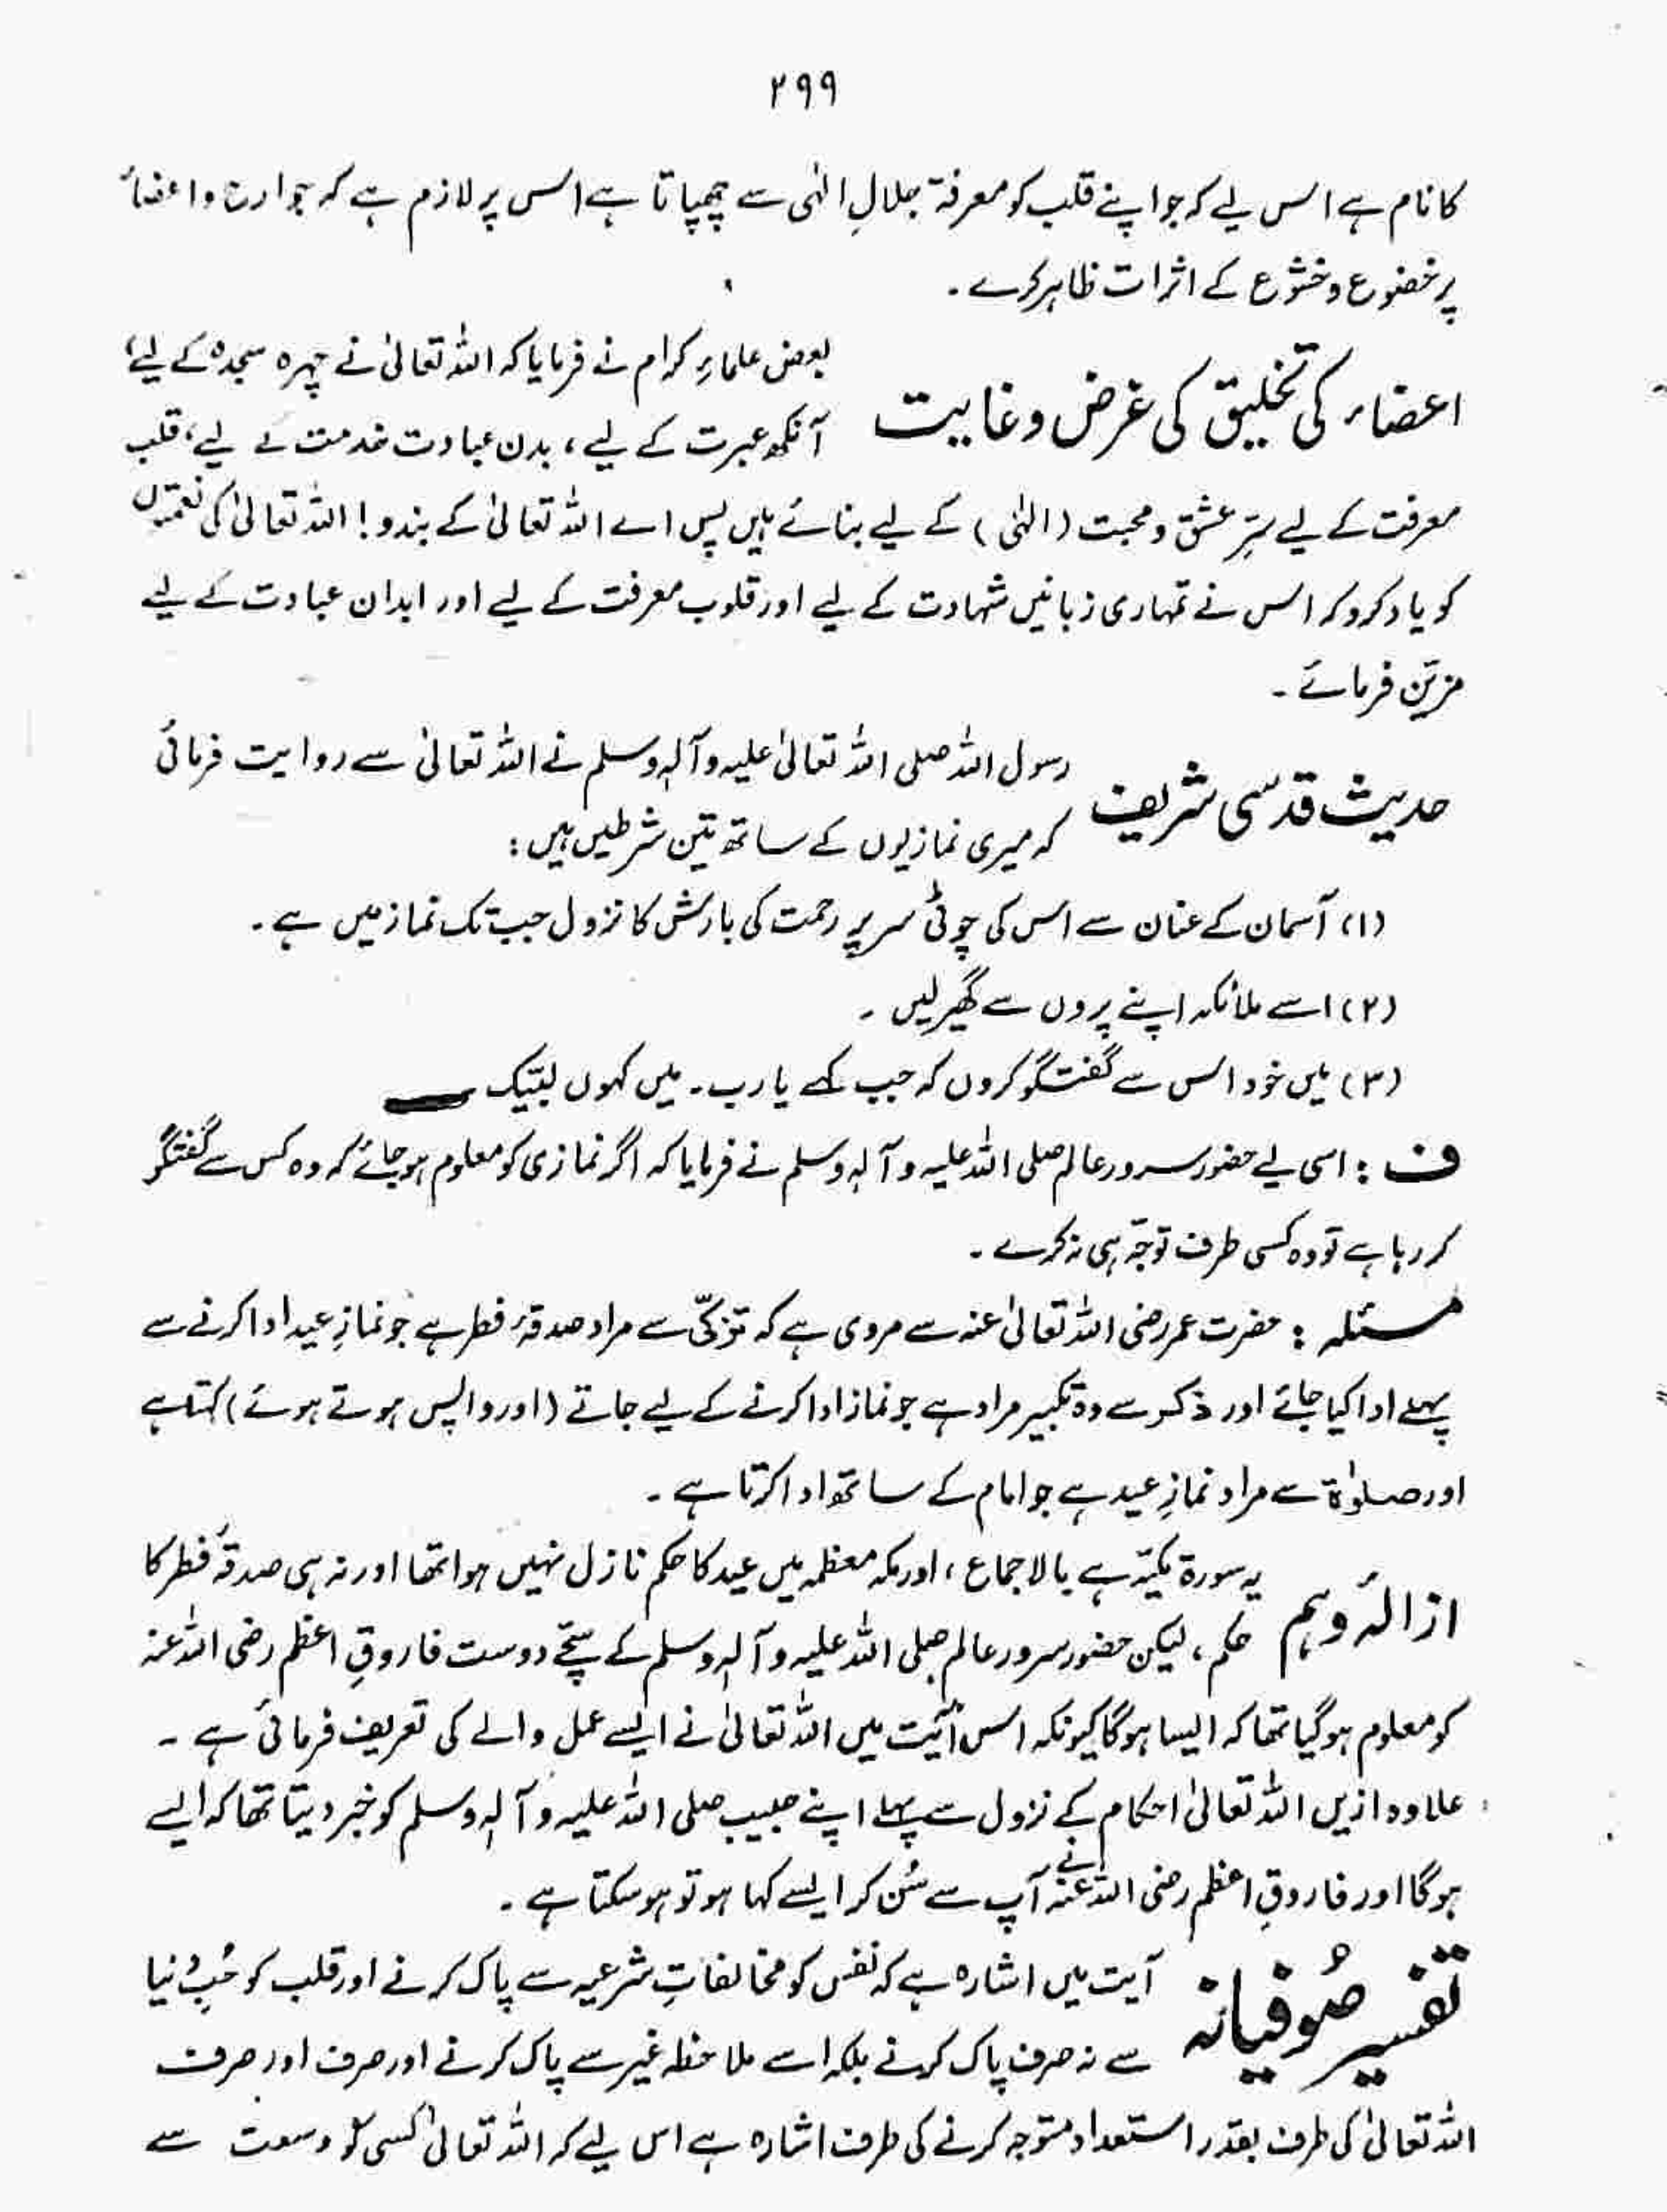 ۲۹۹
کا نام ہے اس لیے کہ جو اپنے قلب کو معرفۃ جلالِ الٰہی سے چھپاتا ہے اس پر لازم ہے کہ جوارح و اعضاء
پر خضوع و خشوع کے اثرات ظاہر کرے۔
اعضاء کی تخلیق کی غرض و غایت
بعض علماءِ کرام نے فرمایا کہ اللہ تعالیٰ نے چہرہ سجدہ کے لیے،
آنکھ عبرت کے لیے، بدن عبادت خدمت کے لیے، قلب
معرفت کے لیے سِرّ عشق و محبت (الٰہی) کے لیے بنائے ہیں پس اے اللہ تعالیٰ کے بندو! اللہ تعالیٰ کی نعمتوں
کو یاد کرو کہ اس نے تمہاری زبانیں شہادت کے لیے اور قلوب معرفت کے لیے اور ابدان عبادت کے لیے
مزیّن فرمائے۔
حدیث قدسی شریف
رسول اللہ صلی اللہ تعالیٰ علیہ وآلہٖ وسلم نے اللہ تعالیٰ سے روایت فرمائی
کہ میری نمازیوں کے ساتھ تین شرطیں ہیں:
(۱) آسمان کے عنان سے اس کی چوٹی سر پر رحمت کی بارش کا نزول جب تک نماز میں ہے۔
(۲) اسے ملائکہ اپنے پروں سے گھیر لیں۔
(۳) میں خود اس سے گفتگو کروں کہ جب کہے یا رب۔ میں کہوں لبّیک
ف: اسی لیے حضور سرور عالم صلی اللہ علیہ وآلہٖ وسلم نے فرمایا کہ اگر نمازی کو معلوم ہو جائے کہ وہ کس سے گفتگو
کر رہا ہے تو وہ کسی طرف توجّہ ہی نہ کرے۔
مسئلہ: حضرت عمر رضی اللہ تعالیٰ عنہ سے مروی ہے کہ تزکّیٰ سے مراد صدقۂ فطر ہے جو نمازِ عید ادا کرنے سے
پہلے ادا کیا جائے اور ذکر سے وہ تکبیر مراد ہے جو نماز ادا کرنے کے لیے جاتے (اور واپس ہوتے ہوئے) کہتا ہے
اور صلوٰۃ سے مراد نمازِ عید ہے جو امام کے ساتھ ادا کرتا ہے۔
ازالۂ وہم
یہ سورۃ مکیّہ ہے بالاجماع، اور مکہ معظمہ میں عید کا حکم نازل نہیں ہوا تھا اور نہ ہی صدقۂ فطر کا
حکم، لیکن حضور سرور عالم صلی اللہ علیہ وآلہٖ وسلم کے سچّے دوست فاروقِ اعظم رضی اللہ عنہ
کو معلوم ہو گیا تھا کہ ایسا ہو گا کیونکہ اس آیت میں اللہ تعالیٰ نے ایسے عمل والے کی تعریف فرمائی ہے۔
علاوہ ازیں اللہ تعالیٰ احکام کے نزول سے پہلے اپنے حبیب صلی اللہ علیہ وآلہٖ وسلم کو خبر دیتا تھا کہ ایسے
ہو گا اور فاروقِ اعظم رضی اللہ عنہ نے آپ سے سُن کر ایسے کہا ہو تو ہو سکتا ہے۔
تفسیر صُوفیانہ
آیت میں اشارہ ہے کہ نفس کو مخالفاتِ شرعیہ سے پاک کرنے اور قلب کو حُبِ دُنیا
سے نہ صرف پاک کرنے بلکہ اسے ملاحظہ غیر سے پاک کرنے اور صرف اور صرف
اللہ تعالیٰ کی طرف بقدر استعداد متوجہ کرنے کی طرف اشارہ ہے اس لیے کہ اللہ تعالیٰ کسی کو وسعت سے